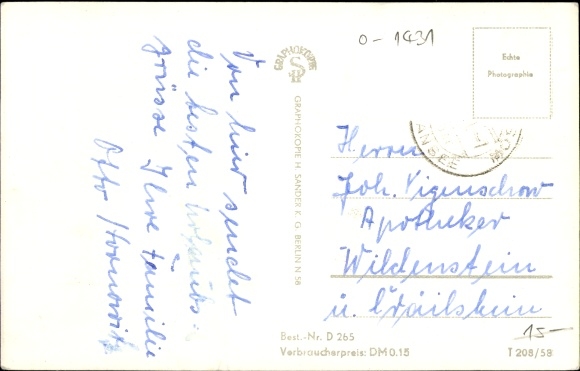 Von hier sendet
die besten Urlaubs-
grüsse Ihre Familie
Otto
0-1431
Echte
Photographie
GRAPHOKOPIE
GRAPHOKOPIE H. SANDER K. G. BERLIN N 58
Herrn
Joh. Vigenschow
Apotheker
Wildenstein
ü. Crailsheim
15-
Best.-Nr. D 265
Verbraucherpreis: DM 0.15
T 208/58